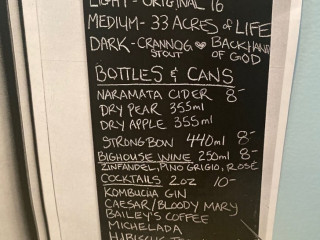 LIGHT - ORIGINAL 16
MEDIUM - 33 ACRES of LIFE
DARK - CRANNOG ♥ BACKHAND
STOUT OF GOD
BOTTLES & CANS
NARAMATA CIDER 8-
DRY PEAR 355ml
DRY APPLE 355ml
STRONGBOW 440ml 8-
BIGHOUSE WINE 250ml 8-
ZINFANDEL, PINO GRIGIO, ROSE
COCKTAILS 2oz 10-
KOMBUCHA GIN
CAESAR/BLOODY MARY
BAILEY'S COFFEE
MICHELADA
HIBISCUS